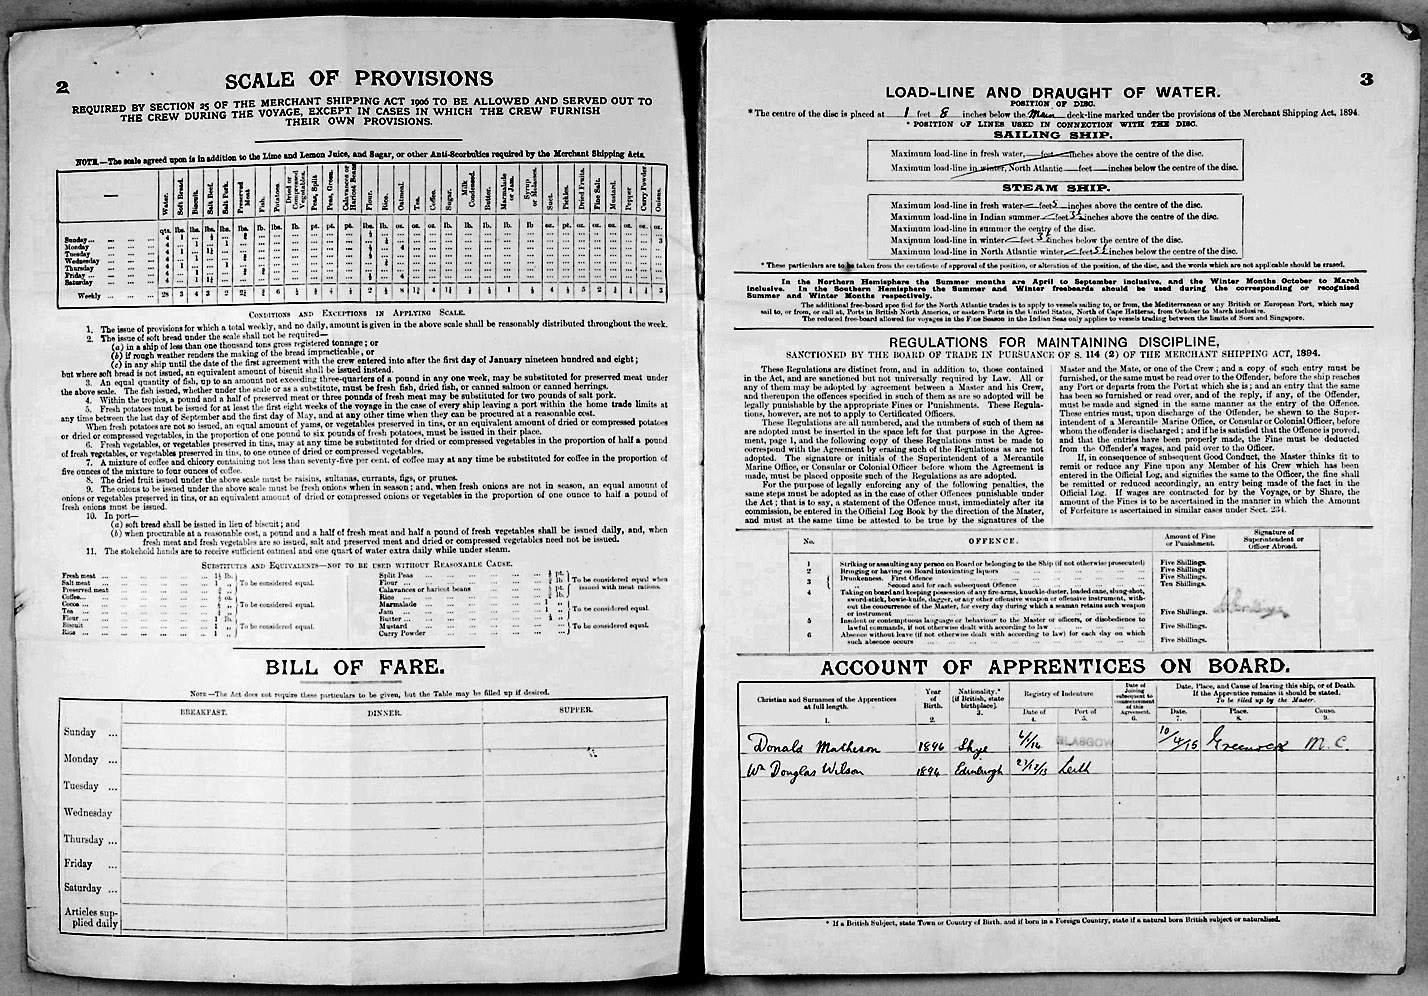 2
SCALE OF PROVISIONS
REQUIRED BY SECTION 25 OF THE MERCHANT SHIPPING ACT 1906 TO BE ALLOWED AND SERVED OUT TO
THE CREW DURING THE VOYAGE, EXCEPT IN CASES IN WHICH THE CREW FURNISH
THEIR OWN PROVISIONS.
NOTE.—The scale agreed upon is in addition to the Lime and Lemon Juice, and Sugar, or other Anti-Scorbutics required by the Merchant Shipping Acts.
Water. Soft Bread. Biscuit. Salt Beef. Salt Pork. Preserved Meat Fish. Potatoes. Dried or Compressed Vegetables. Peas, Split Peas, Green. Calavances or Haricot Beans Flour. Rice. Oatmeal. Tea. Coffee. Sugar. Milk Condensed. Butter. Marmalade or Jam. Syrup or Molasses. Suet. Pickles. Dried Fruits. Fine Salt. Mustard. Pepper Curry Powder Onions.
Sunday...
Monday
Tuesday
Wednesday
Thursday
Friday
Saturday
Weekly
CONDITIONS AND EXCEPTIONS IN APPLYING SCALE.
1. The issue of provisions for which a total weekly, and no daily, amount is given in the above scale shall be reasonably distributed throughout the week.
2. The issue of soft bread under the scale shall not be required—
(a) in a ship of less than one thousand tons gross registered tonnage; or
(b) if rough weather renders the making of the bread impracticable, or
(c) in any ship until the date of the first agreement with the crew entered into after the first day of January nineteen hundred and eight;
but where soft bread is not issued, an equivalent amount of biscuit shall be issued instead.
3. An equal quantity of fish, up to an amount not exceeding three-quarters of a pound in any one week, may be substituted for preserved meat under
the above scale. The fish issued, whether under the scale or as a substitute, must be fresh fish, dried fish, or canned salmon or canned herrings.
4. Within the tropics, a pound and a half of preserved meat or three pounds of fresh meat may be substituted for two pounds of salt pork.
5. Fresh potatoes must be issued for at least the first eight weeks of the voyage in the case of every ship leaving a port within the home trade limits at
any time between the last day of September and the first day of May, and at any other time when they can be procured at a reasonable cost.
When fresh potatoes are not so issued, an equal amount of yams, or vegetables preserved in tins, or an equivalent amount of dried or compressed potatoes
or dried or compressed vegetables, in the proportion of one pound to six pounds of fresh potatoes, must be issued in their place.
6. Fresh vegetables, or vegetables preserved in tins, may at any time be substituted for dried or compressed vegetables in the proportion of half a pound
of fresh vegetables, or vegetables preserved in tins, to one ounce of dried or compressed vegetables.
7. A mixture of coffee and chicory containing not less than seventy-five per cent. of coffee may at any time be substituted for coffee in the proportion of
five ounces of the mixture to four ounces of coffee.
8. The dried fruit issued under the above scale must be raisins, sultanas, currants, figs, or prunes.
9. The onions to be issued under the above scale must be fresh onions when in season; and, when fresh onions are not in season, an equal amount of
onions or vegetables preserved in tins, or an equivalent amount of dried or compressed onions or vegetables in the proportion of one ounce to half a pound of
fresh onions must be issued.
10. In port—
(a) soft bread shall be issued in lieu of biscuit; and
(b) when procurable at a reasonable cost, a pound and a half of fresh meat and half a pound of fresh vegetables shall be issued daily, and, when
fresh meat and fresh vegetables are so issued, salt and preserved meat and dried or compressed vegetables need not be issued.
11. The stokehold hands are to receive sufficient oatmeal and one quart of water extra daily while under steam.
SUBSTITUTES AND EQUIVALENTS—NOT TO BE USED WITHOUT REASONABLE CAUSE.
Fresh meat
Salt meat
Preserved meat
To be considered equal.
Coffee
Cocoa
Tea
To be considered equal.
Flour
Biscuit
Rice
To be considered equal.
Split Peas
Flour
Calavances or haricot beans
Rice
To be considered equal when issued with meat rations.
Marmalade
Jam
Butter
To be considered equal.
Mustard
Curry Powder
To be considered equal.
BILL OF FARE.
NOTE—The Act does not require these particulars to be given, but the Table may be filled up if desired.
BREAKFAST. DINNER. SUPPER.
Sunday ...
Monday ...
Tuesday ...
Wednesday
Thursday ...
Friday ...
Saturday ...
Articles supplied daily
3
LOAD-LINE AND DRAUGHT OF WATER.
POSITION OF DISC.
* The centre of the disc is placed at 1 feet 8 inches below the Main deck-line marked under the provisions of the Merchant Shipping Act, 1894.
* POSITION OF LINES USED IN CONNECTION WITH THE DISC.
SAILING SHIP.
Maximum load-line in fresh water, feet inches above the centre of the disc.
Maximum load-line in winter, North Atlantic feet inches below the centre of the disc.
STEAM SHIP.
Maximum load-line in fresh water feet 5 inches above the centre of the disc.
Maximum load-line in Indian summer feet 3½ inches above the centre of the disc.
Maximum load-line in summer the centre of the disc.
Maximum load-line in winter feet 3½ inches below the centre of the disc.
Maximum load-line in North Atlantic winter feet 5½ inches below the centre of the disc.
* These particulars are to be taken from the certificate of approval of the position, or alteration of the position, of the disc, and the words which are not applicable should be erased.
In the Northern Hemisphere the Summer months are April to September inclusive, and the Winter Months October to March
inclusive. In the Southern Hemisphere the Summer and Winter freeboards should be used during the corresponding or recognised
Summer and Winter Months respectively.
The additional free-board specified for the North Atlantic trades is to apply to vessels sailing to, or from, the Mediterranean or any British or European Port, which may
sail to, or from, or call at, Ports in British North America, or eastern Ports in the United States, North of Cape Hatteras, from October to March inclusive.
The reduced free-board allowed for voyages in the Fine Season in the Indian Seas only applies to vessels trading between the limits of Suez and Singapore.
REGULATIONS FOR MAINTAINING DISCIPLINE,
SANCTIONED BY THE BOARD OF TRADE IN PURSUANCE OF S. 114 (2) OF THE MERCHANT SHIPPING ACT, 1894.
These Regulations are distinct from, and in addition to, those contained
in the Act, and are sanctioned but not universally required by Law. All or
any of them may be adopted by agreement between a Master and his Crew,
and thereupon the offences specified in such of them as are so adopted will be
legally punishable by the appropriate Fines or Punishments. These Regula-
tions, however, are not to apply to Certificated Officers.
These Regulations are all numbered, and the numbers of such of them as
are adopted must be inserted in the space left for that purpose in the Agree-
ment, page 1, and the following copy of these Regulations must be made to
correspond with the Agreement by erasing such of the Regulations as are not
adopted. The signature or initials of the Superintendent of a Mercantile
Marine Office, or Consular or Colonial Officer before whom the Agreement is
made, must be placed opposite such of the Regulations as are adopted.
For the purpose of legally enforcing any of the following penalties, the
same steps must be adopted as in the case of other Offences punishable under
the Act; that is to say, a statement of the Offence must, immediately after its
commission, be entered in the Official Log Book by the direction of the Master,
and must at the same time be attested to be true by the signatures of the
Master and the Mate, or one of the Crew; and a copy of such entry must be
furnished, or the same must be read over to the Offender, before the ship reaches
any Port or departs from the Port at which she is; and an entry that the same
has been so furnished or read over, and of the reply, if any, of the Offender,
must be made and signed in the same manner as the entry of the Offence.
These entries must, upon discharge of the Offender, be shewn to the Super-
intendent of a Mercantile Marine Office, or Consular or Colonial Officer, before
whom the offender is discharged; and if he is satisfied that the Offence is proved,
and that the entries have been properly made, the Fine must be deducted
from the Offender's wages, and paid over to the Officer.
If, in consequence of subsequent Good Conduct, the Master thinks fit to
remit or reduce any Fine upon any Member of his Crew which has been
entered in the Official Log, and signifies the same to the Officer, the fine shall
be remitted or reduced accordingly, an entry being made of the fact in the
Official Log. If wages are contracted for by the Voyage, or by Share, the
amount of the Fines is to be ascertained in the manner in which the Amount
of Forfeiture is ascertained in similar cases under Sect. 234.
No. OFFENCE. Amount of Fine or Punishment. Signature of Superintendent or Officer Abroad.
1 Striking or assaulting any person on Board or belonging to the Ship (if not otherwise prosecuted) Five Shillings.
2 Bringing or having on Board intoxicating liquors Five Shillings.
3 Drunkenness. First Offence Five Shillings.
„ Second and for each subsequent Offence Ten Shillings.
4 Taking on board and keeping possession of any fire-arms, knuckle-duster, loaded cane, slung-shot,
sword-stick, bowie-knife, dagger, or any other offensive weapon or offensive instrument, with-
out the concurrence of the Master, for every day during which a seaman retains such weapon
or instrument Five Shillings.
5 Insolent or contemptuous language or behaviour to the Master or officers, or disobedience to
lawful commands, if not otherwise dealt with according to law Five Shillings.
6 Absence without leave (if not otherwise dealt with according to law) for each day on which
such absence occurs Five Shillings.
ACCOUNT OF APPRENTICES ON BOARD.
Christian and Surnames of the Apprentices at full length. 1.
Year of Birth. 2.
Nationality.* [if British, state birthplace]. 3.
Registry of Indenture
Date of 4.
Port of 5.
Date of Joining subsequent to commencement of this Agreement. 6.
Date, Place, and Cause of leaving this ship, or of Death.
If the Apprentice remains it should be stated.
To be filled up by the Master.
Date. 7.
Place. 8.
Cause. 9.
Donald Matheson 1896 Skye 6/1/14 GLASGOW 10/4/15 Greenock M.C.
Wm Douglas Wilson 1894 Edinburgh 23/12/13 Leith
* If a British Subject, state Town or Country of Birth, and if born in a Foreign Country, state if a natural born British subject or naturalised.